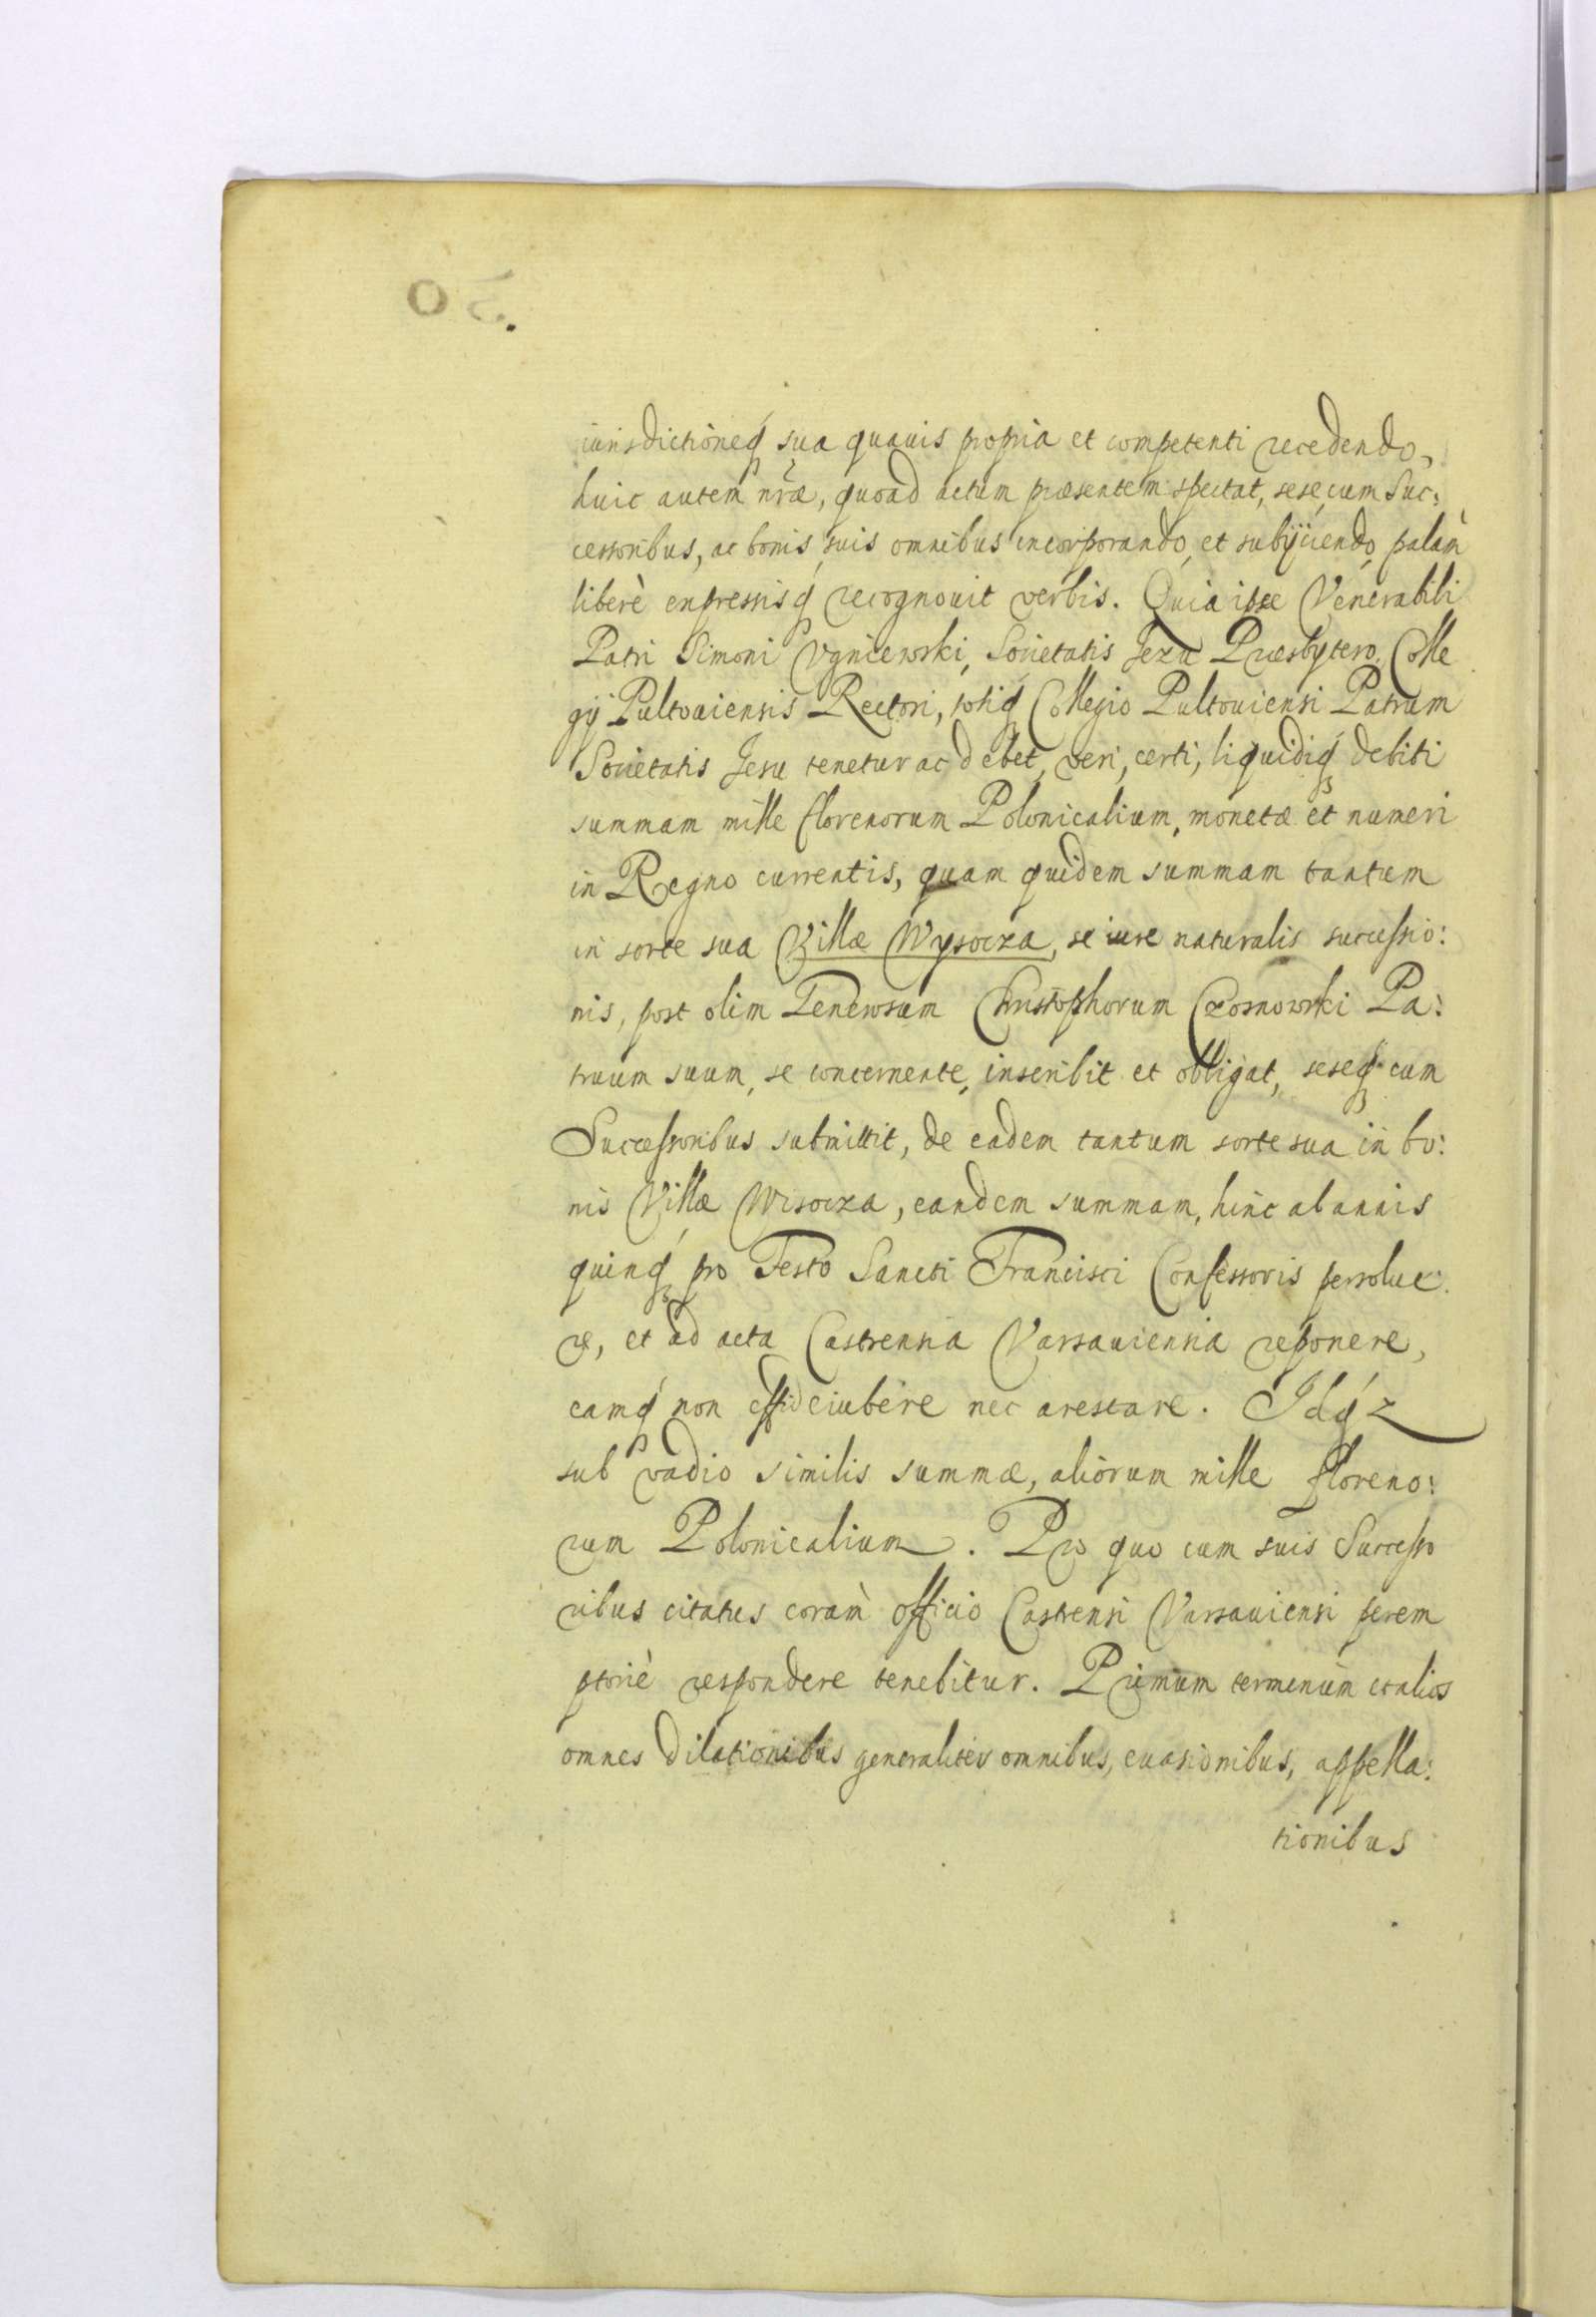 iurisdictioneq́ sua quauis propria et competenti recedendo,
huic autem nr̃æ, quoad actum præsentem spectat, sese, cum Suc:
cessoribus, ac bonis suis omnibus incorporando, et subÿciendo, palàm
liberè enpressisq́ recognouit verbis. Quia ipse Venerabili
Patri Simoni Vgniewski, Societatis Jezu Præsbytero, Colle
gÿ Pultouiensis Rectori, totiq́ Collegio Pultouiensi Patrum
Societatis Jesu tenetur ac debet, veri, certi, liquidiq́ debiti
summam mille florenorum Polonicalium, monetæ et numeri
in Regno currentis, quam quidem summam tantum
in sorte sua Villæ Wysocza, se iure naturalis successio:
nis, post olim Generosum Christophorum Czosnowski Pa:
truum suum, se concernente, inscribit et obligat, seseq́ cum
Successoribus submittit, de eadem tantum sorte sua in bo:
nis Villæ Wisocza, eandem summam, hinc ab annis
quinq́ pro Festo Sancti Francisci Confessoris persolue:
re, et ad acta Castrensia Varsauiensia reponere,
eamq́ non effideiubere nec arestare. Idq́z
sub vadio similis summæ, aliorum mille floreno:
rum Polonicalium. Pro quo cum suis Successo
ribus citatus coràm officio Castrensi Varsauiensi perem
ptoriè respondere tenebitur. Primum terminum et alios
omnes dilationibus generaliter omnibus, euasionibus, appella:
tionibus